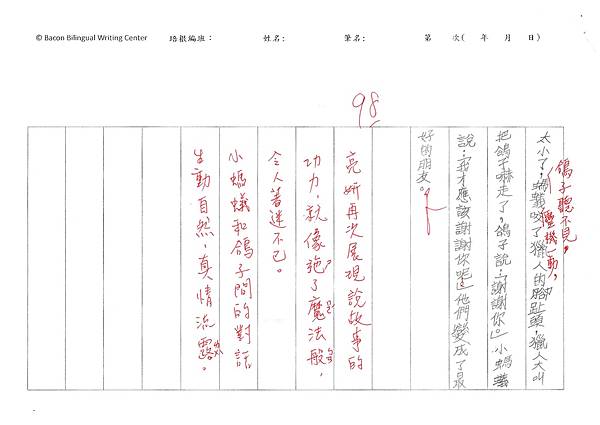 © Bacon Bilingual Writing Center 培根編班： 姓名： 筆名： 第 次( 年 月 日)
鴿子聽不見，
靈機一動，
太小了，螞蟻咬了獵人的腳趾頭，獵人大叫
把鴿子嚇走了，鴿子說：「謝謝你」。小螞蟻
說：「我才應該謝謝你呢」他們變成了最
好的朋友。
98
亮妍再次展現說故事的
功力，就像施了魔法般，
令人著迷不已。
小螞蟻和鴿子間的對話
生動自然，真情流露。